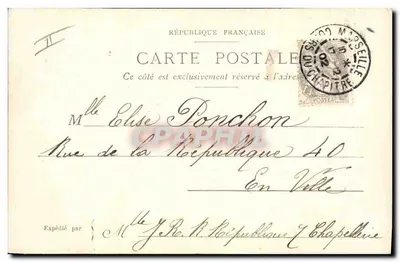 II
RÉPUBLIQUE FRANÇAISE
CARTE POSTALE
Ce côté est exclusivement réservé à l'adres
MARSEILLE
COURS DU CHAPITRE
02
Mlle Elise Ponchon
CPAPHIL
Rue de la République 40
En Ville
Expédié par
Mlle J R. R République 7 Chapellerie